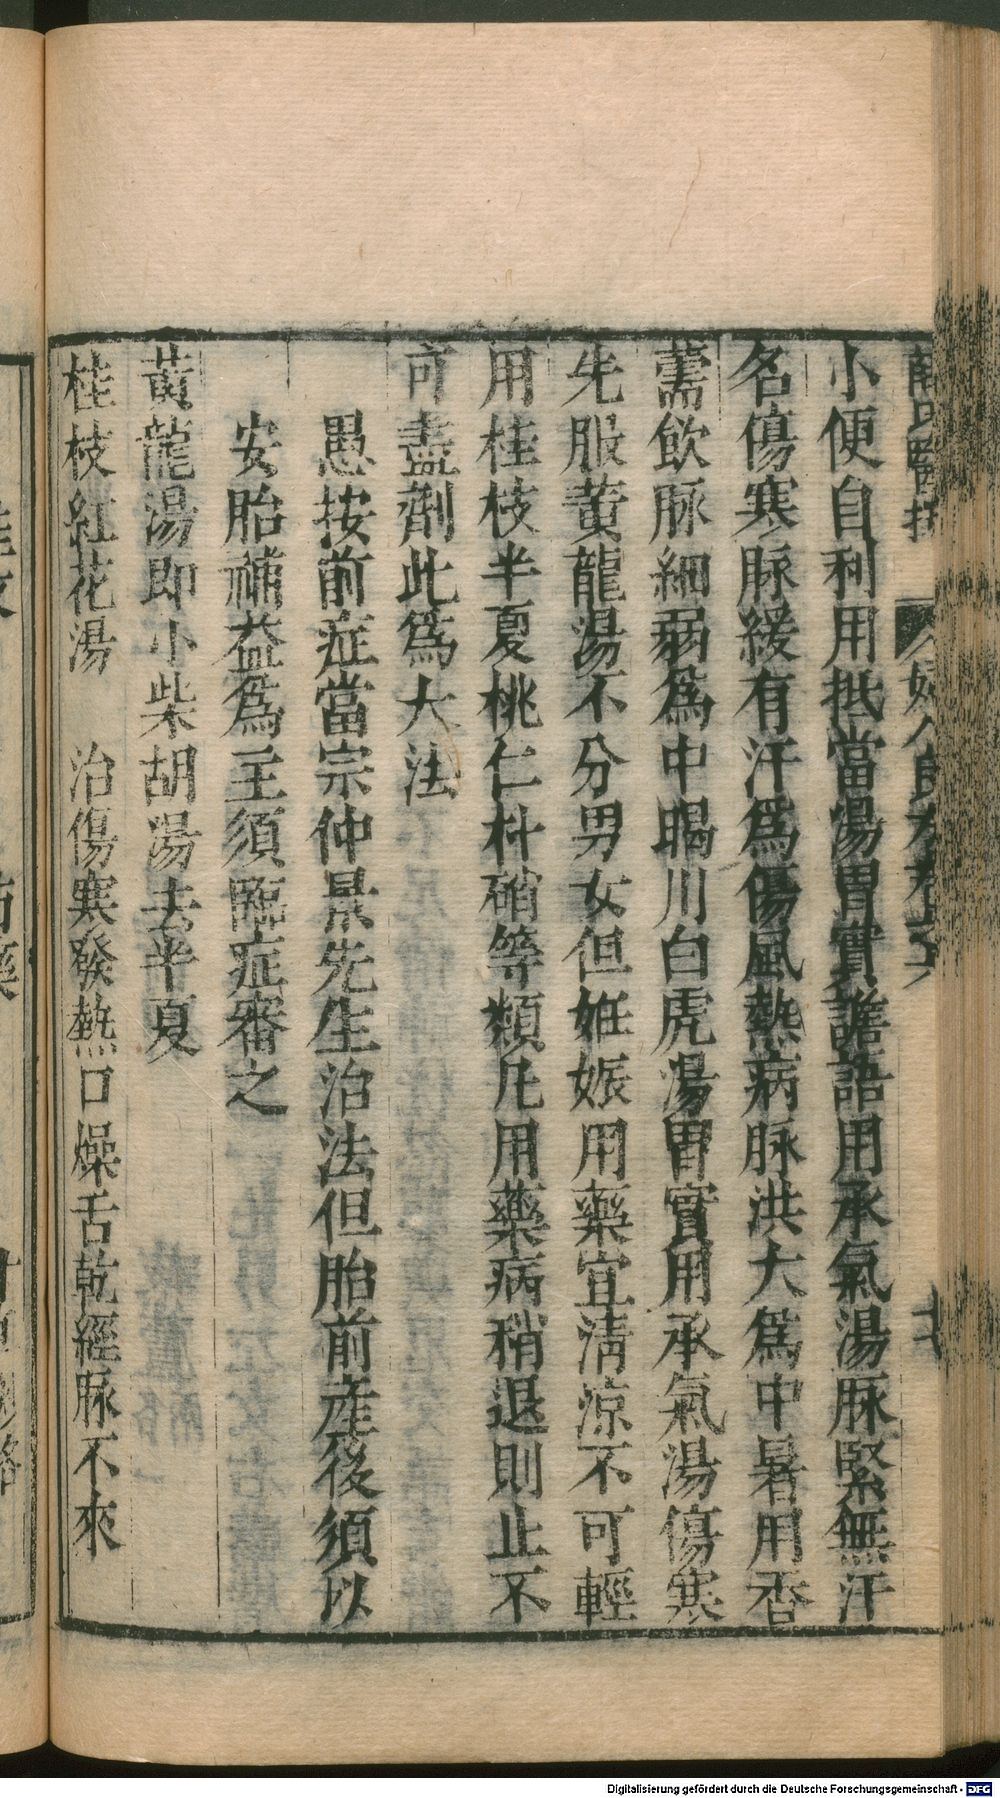 小便自利用抵當湯胃實譫語用承氣湯脉緊無汗
名傷寒脉緩有汗爲傷風熱病脉洪大爲中暑用香
薷飲脉細弱爲中暍用白虎湯胃實用承氣湯傷寒
先服黄龍湯不分男女但妊娠用藥宜清凉不可輕
用桂枝半夏桃仁朴硝等類凡用藥病稍退則止不
可盡劑此爲大法
愚按前症當宗仲景先生治法但胎前產後須以
安胎補益爲主須臨症審之
黄龍湯即小柴胡湯去半夏
桂枝紅花湯 治傷寒發熱口燥舌乾經脉不來
Digitalisierung gefördert durch die Deutsche Forschungsgemeinschaft - DFG